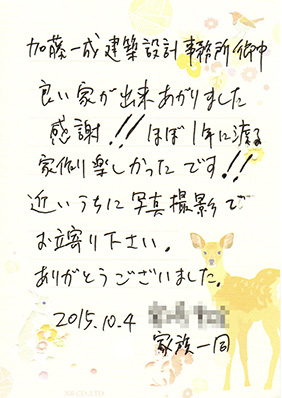 加藤一成建築設計事務所御中
良い家が出来あがりました
感謝!! ほぼ1年に渡る
家作り楽しかったです!!
近いうちに写真撮影で
お立寄り下さい。
ありがとうございました。
2015.10.4
家族一同